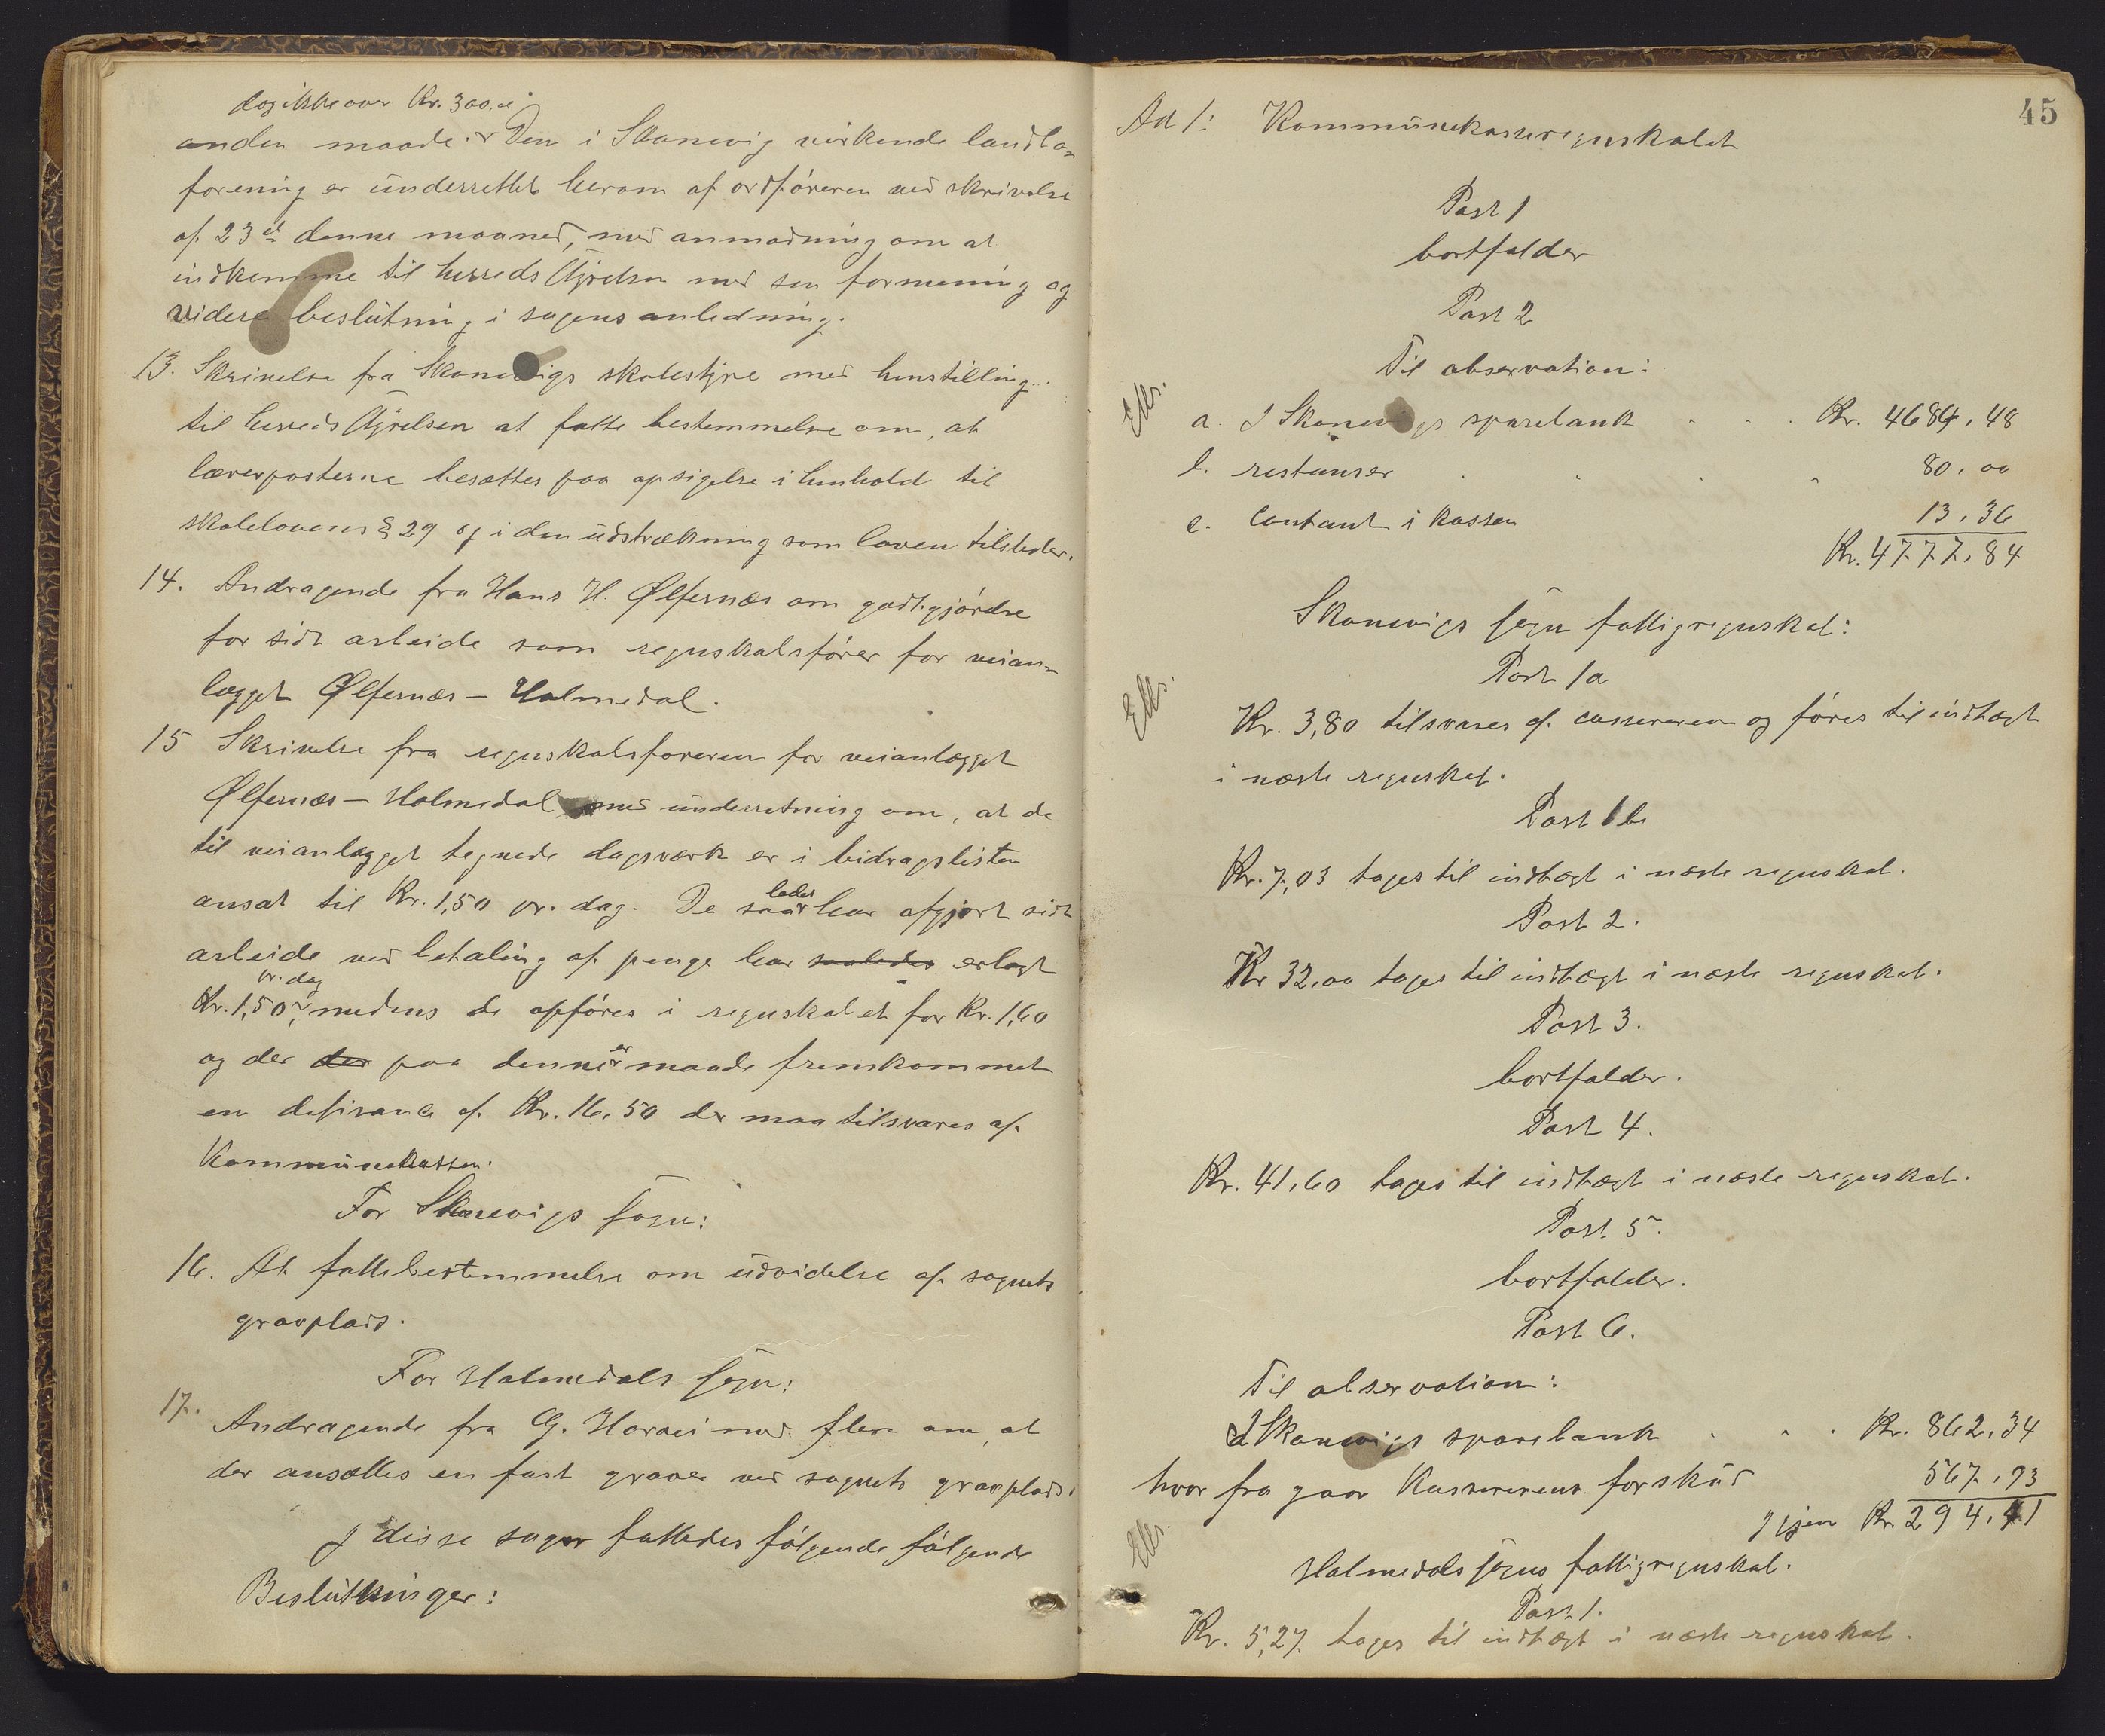 dog ikke over Kr. 300.
anden maade. Den i Skanevig virkende landbo-
forening er underrettet herom af ordføreren ved skrivelse
af 23de denne maaned, med anmodning om at
indkomme til herredsstyrelsen med sin formening og
videre beslutning i sagens anledning.
13. Skrivelse fra Skanevigs skolestyre med henstilling
til herredsstyrelsen at fatte bestemmelse om, at
lærerposterne besættes paa opsigelse i henhold til
skolelovens § 29 og i den udstrækning som loven tilsteder.
14. Andragende fra Hans H. Ølfernæs om godtgjørelse
for sidt arbeide som regnskabsfører for veian-
lægget Ølfernæs - Holmedal.
15 Skrivelse fra regnskabsføreren for veianlægget
Ølfernæs - Holmedal med underretning om, at de
til veianlægget tegnede dagsværk er i bidragslisten
ansat til Kr. 1,50 pr. dag. De saaledes har afgjort sidt
arbeide ved betaling af penge har saaledes erlagt
Kr. 1,50 pr. dag, medens de opføres i regnskabet for Kr. 1,60
og der der paa denne er maade fremkommet
en diferance af Kr. 16,50 der maa tilsvares af
Kommunekassen.
For Skanevigs sogn:
16. At fatte bestemmelse om udvidelse af sognets
gravplads.
For Holmedals sogn:
17. Andragende fra G. Horvei med flere om, at
der ansættes en fast graver ved sognets gravplads.
I disse sager fattedes følgende følgende
Beslutninger:
45
Ad 1: Kommunekasseregnskabet
Post 1
bortfalder
Post 2
Til observation:
a. I Skanevigs sparebank . . . Kr. 4684,48
b. restanser . . . . 80,00
c. Contant i kassen 13,36
Kr. 4777,84
Skanevigs sogns fattigregnskab:
Post 1a
Kr. 3,80 tilsvares af cassereren og føres til indtægt
i næste regnskab.
Post 1b
Kr. 7,03 tages til indtægt i næste regnskab.
Post 2.
Kr 32,00 tages til indtægt i næste regnskab.
Post 3.
bortfalder.
Post 4.
Kr. 41,60 tages til indtægt i næste regnskab.
Post 5.
bortfalder.
Post 6.
Til observation:
I Skanevigs sparebank . . . Kr. 862,34
hvor fra gaar Kassererens forskud 567,93
Igjen Kr. 294,41
Holmedals sogns fattigregnskab.
Post 1.
Kr. 5,27 tages til indtægt i næste regnskab.